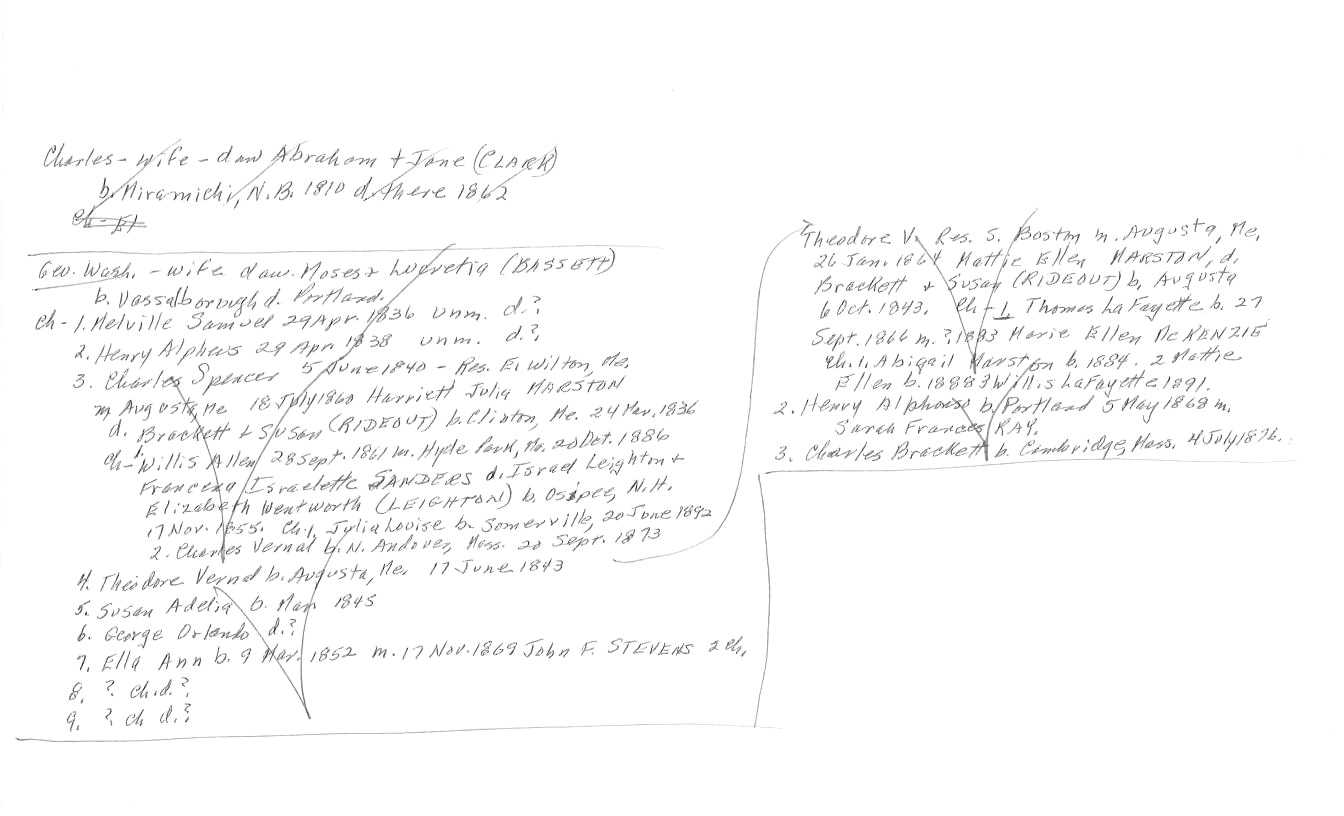 Charles - wife - daw Abraham + Jane (CLARK)
b. Miramichi, N.B. 1810 d. there 1862
Geo. Wash. - wife daw. Moses + Lucretia (BASSETT)
b. Vassalborough d. Portland.
Ch - 1. Melville Samuel 29 Apr. 1836 unm. d.?
2. Henry Alpheus 29 Apr 1838 unm. d.?
3. Charles Spencer 5 June 1840 - Res. E. Wilton, Me.
m Augusta, Me 18 July 1860 Harriett Julia MARSTON
d. Brackett + Susan (RIDEOUT) b. Clinton, Me. 24 Mar. 1836
Ch - 1. Willis Allen 28 Sept. 1861 m. Hyde Park, Ma. 20 Oct. 1886
Israelette SANDERS d. Israel Leighton +
Elizabeth Wentworth (LEIGHTON) b. Osipee, N.H.
17 Nov. 1855. Ch. 1. Julia Louise b. Somerville, 20 June 1892
2. Charles Vernal b. N. Andover, Mass. 20 Sept. 1873
4. Theodore Vernal b. Augusta, Me. 17 June 1843
5. Susan Adelia b. Mar. 1845
6. George Orlando d.?
7. Ella Ann b. 9 Mar. 1852 m. 17 Nov. 1869 John F. STEVENS 2 ch.
8. ? ch. d.?
9. ? ch d.?
Theodore V. Res. S. Boston m. Augusta, Me.
26 Jan. 1864 Mattie Ellen MARSTON, d.
Brackett + Susan (RIDEOUT) b. Augusta
6 Oct. 1843. Ch - 1. Thomas LaFayette b. 27
Sept. 1866 m. ? 1883 Marie Ellen McKENZIE
Ch. 1. Abigail Marston b. 1884. 2 Mattie
Ellen b. 1888 3 Willis LaFayette 1891.
2. Henry Alphonso b. Portland 5 May 1868 m.
Sarah Frances RAY.
3. Charles Brackett b. Cambridge, Mass. 4 July 1876.